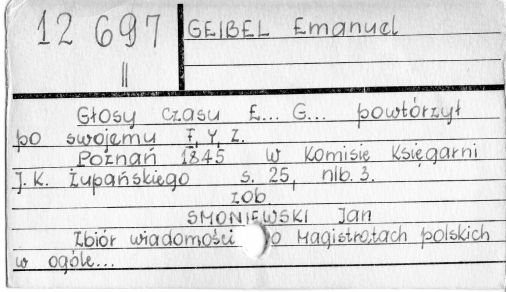 12 697
II
GEIBEL Emanuel
Głosy czasu E... G... powtórzył
po swojemu F. Y. Z.
Poznań 1845 w Komisie Księgarni
J. K. Żupańskiego s. 25, nlb. 3.
zob.
SMONIEWSKI Jan
Zbiór wiadomości o Magistratach polskich
w ogóle...